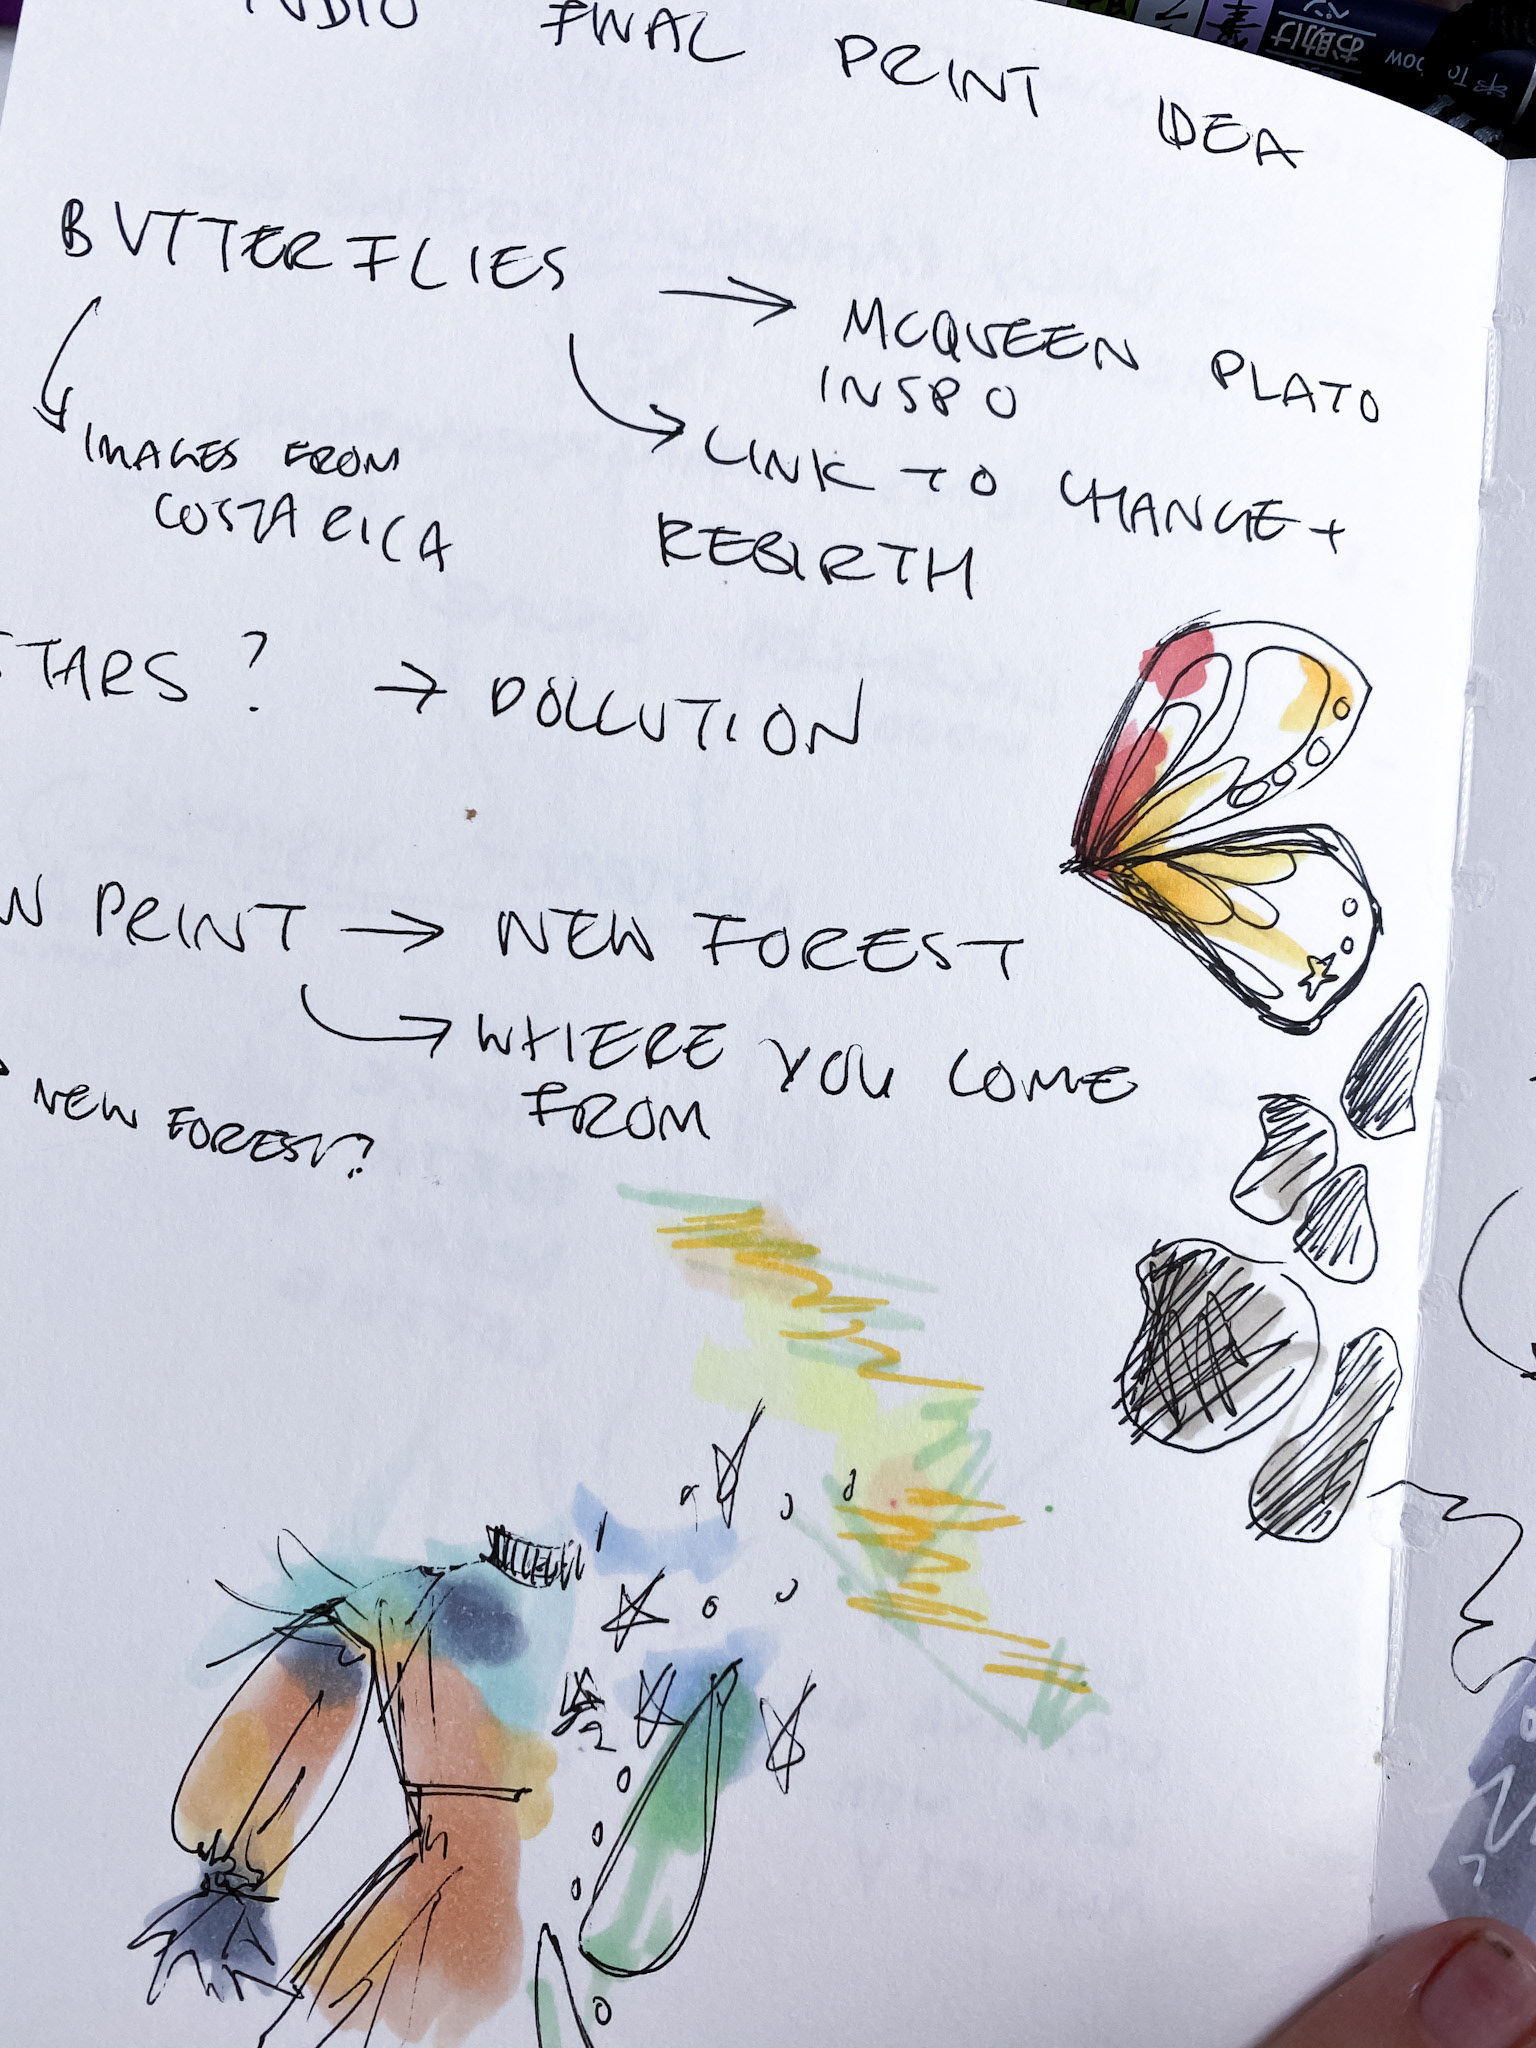 FINAL PRINT IDEA
BUTTERFLIES → MCQUEEN PLATO
INSPO
IMAGES FROM
COSTA RICA
LINK TO CHANGE +
REBIRTH
STARS? → POLLUTION
PRINT → NEW FOREST
WHERE YOU COME
FROM
NEW FOREST?
お助け